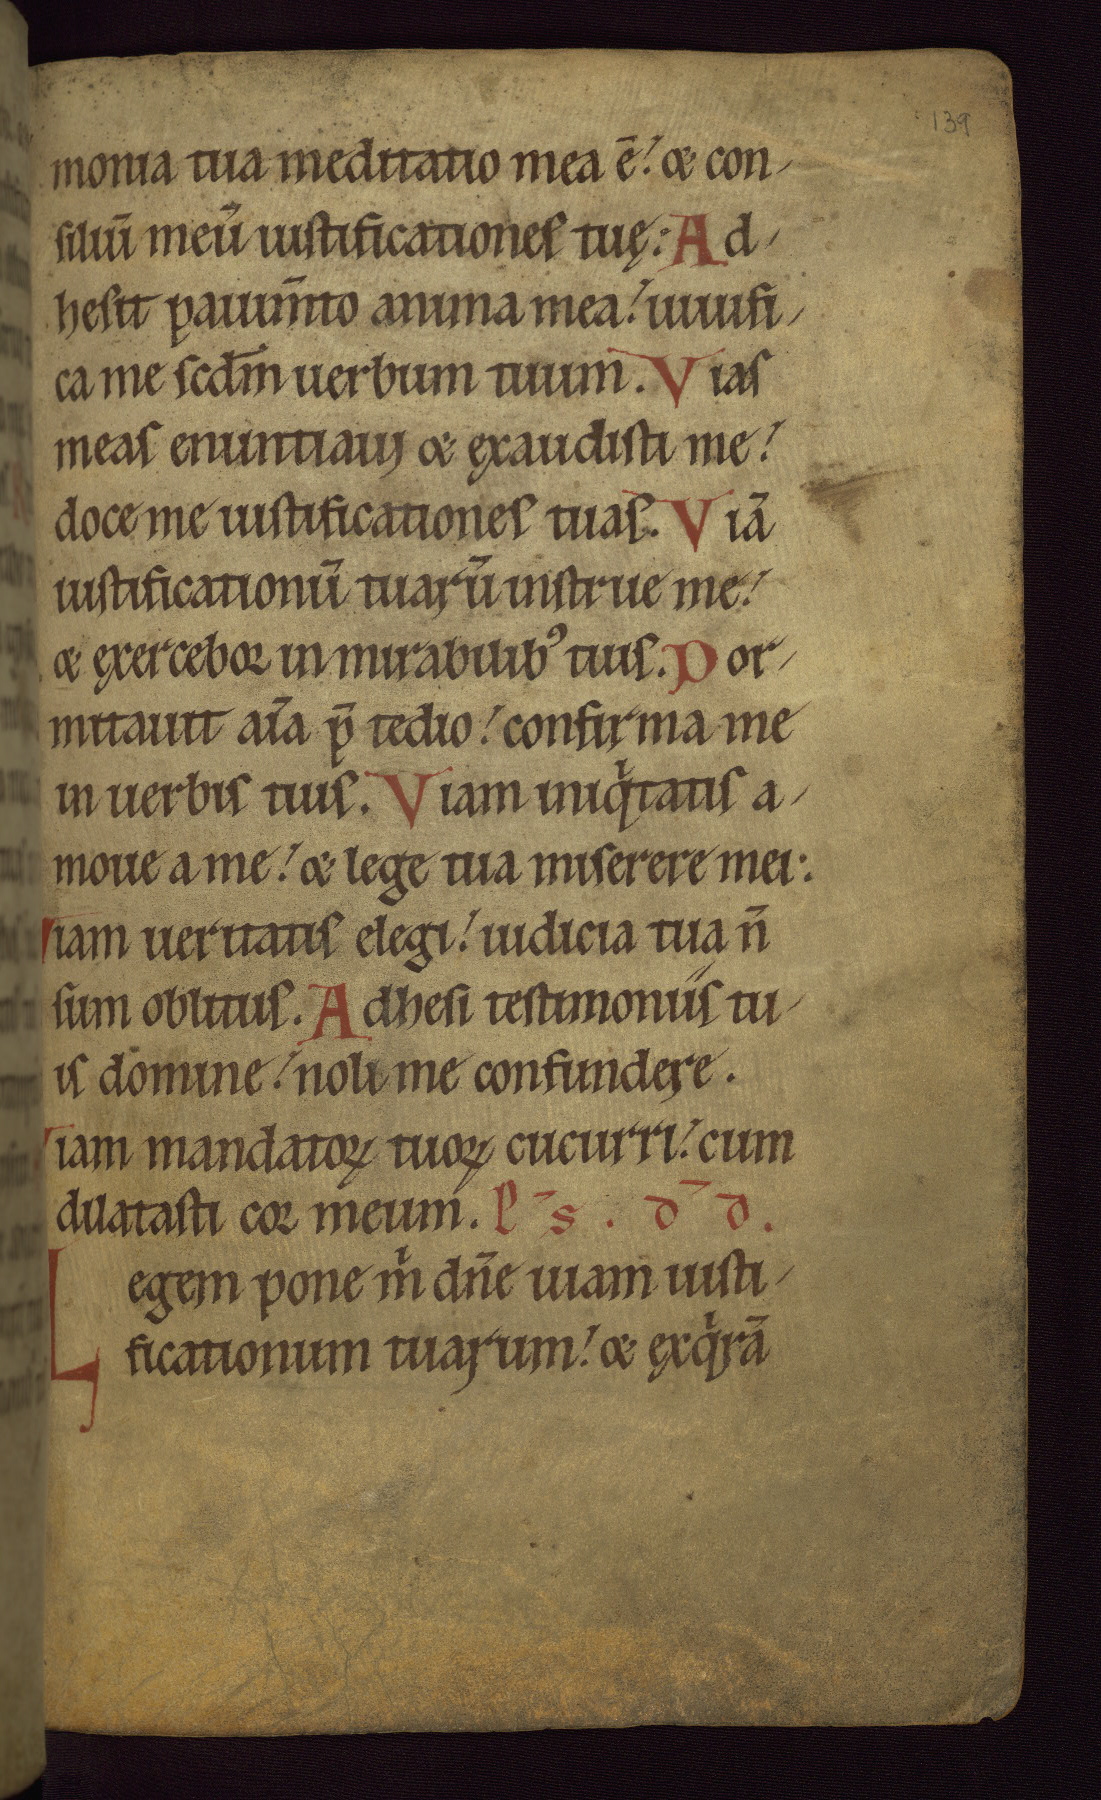 139
monia tua meditatio mea ē! & con-
siliū meū iustificationes tuę: Ad-
hesit pauim̄to anima mea! uiuifi-
ca me scdm̄ uerbum tuum. Vias
meas enuntiaui & ęxaudisti me!
doce me iustificationes tuas. Viā
iustificationū tuarū instrue me!
& ęxercebor in mirabilib' tuis. Dor-
mitauit aīa p̄ tedio! confirma me
in uerbis tuis. Viam iniqͥtatis a-
moue a me! & lege tua miserere mei:
Viam ueritatis elegi! iudicia tua n̄
sum oblitus. Adhesi testimoniis tu-
is domine! noli me confundere.
Viam mandatoꝝ tuoꝝ cucurri! cum
dilatasti cor meum. P̄s. d̄d.
Legem pone mͥ dn̄e uiam iusti-
ficationum tuarum! & ęxqͥrā